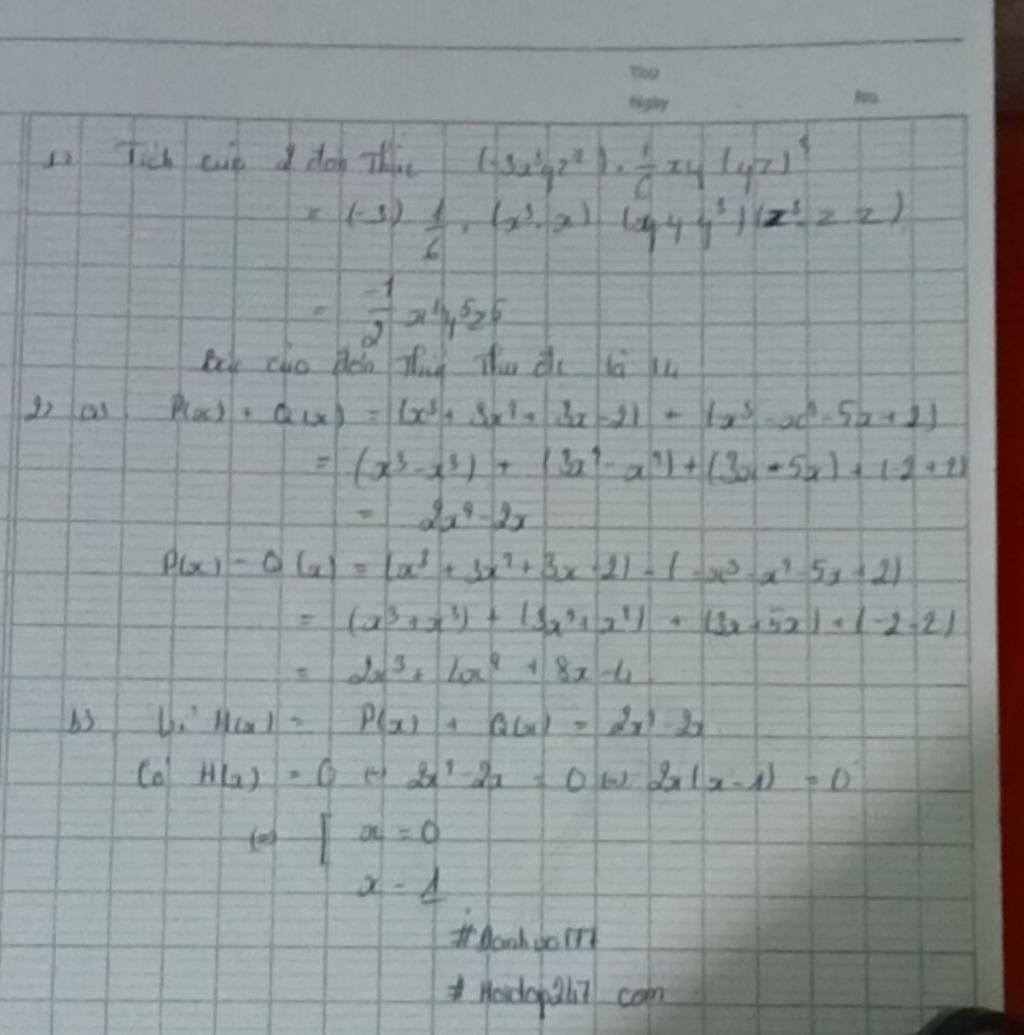 Thứ
Ngày No.
1) Tích của 2 đơn thức (-3x³yz²) . 1/6 xy (yz)³
= (-3) 1/6 . (x³. x) (y y y³) (z³ z z)
= -1/2 x⁴y⁵z⁵
Bậc của đơn thức thu đc là 14
2) a) P(x) + Q(x) = (x³ + 3x² + 3x - 2) + (x³ - x² - 5x + 2)
= (x³ - x³) + (3x² - x²) + (3x - 5x) + (-2 + 2)
= 2x² - 2x
P(x) - Q(x) = (x³ + 3x² + 3x - 2) - (-x³ - x² - 5x + 2)
= (x³ + x³) + (3x² + x²) + (3x + 5x) + (-2 - 2)
= 2x³ + 4x² + 8x - 4
b) Vì H(x) = P(x) + Q(x) = 2x² - 2x
Có H(x) = 0 ⇔ 2x² - 2x = 0 ⇔ 2x(x - 1) = 0
⇔ [ x = 0
x = 1
# Hoidap247 com